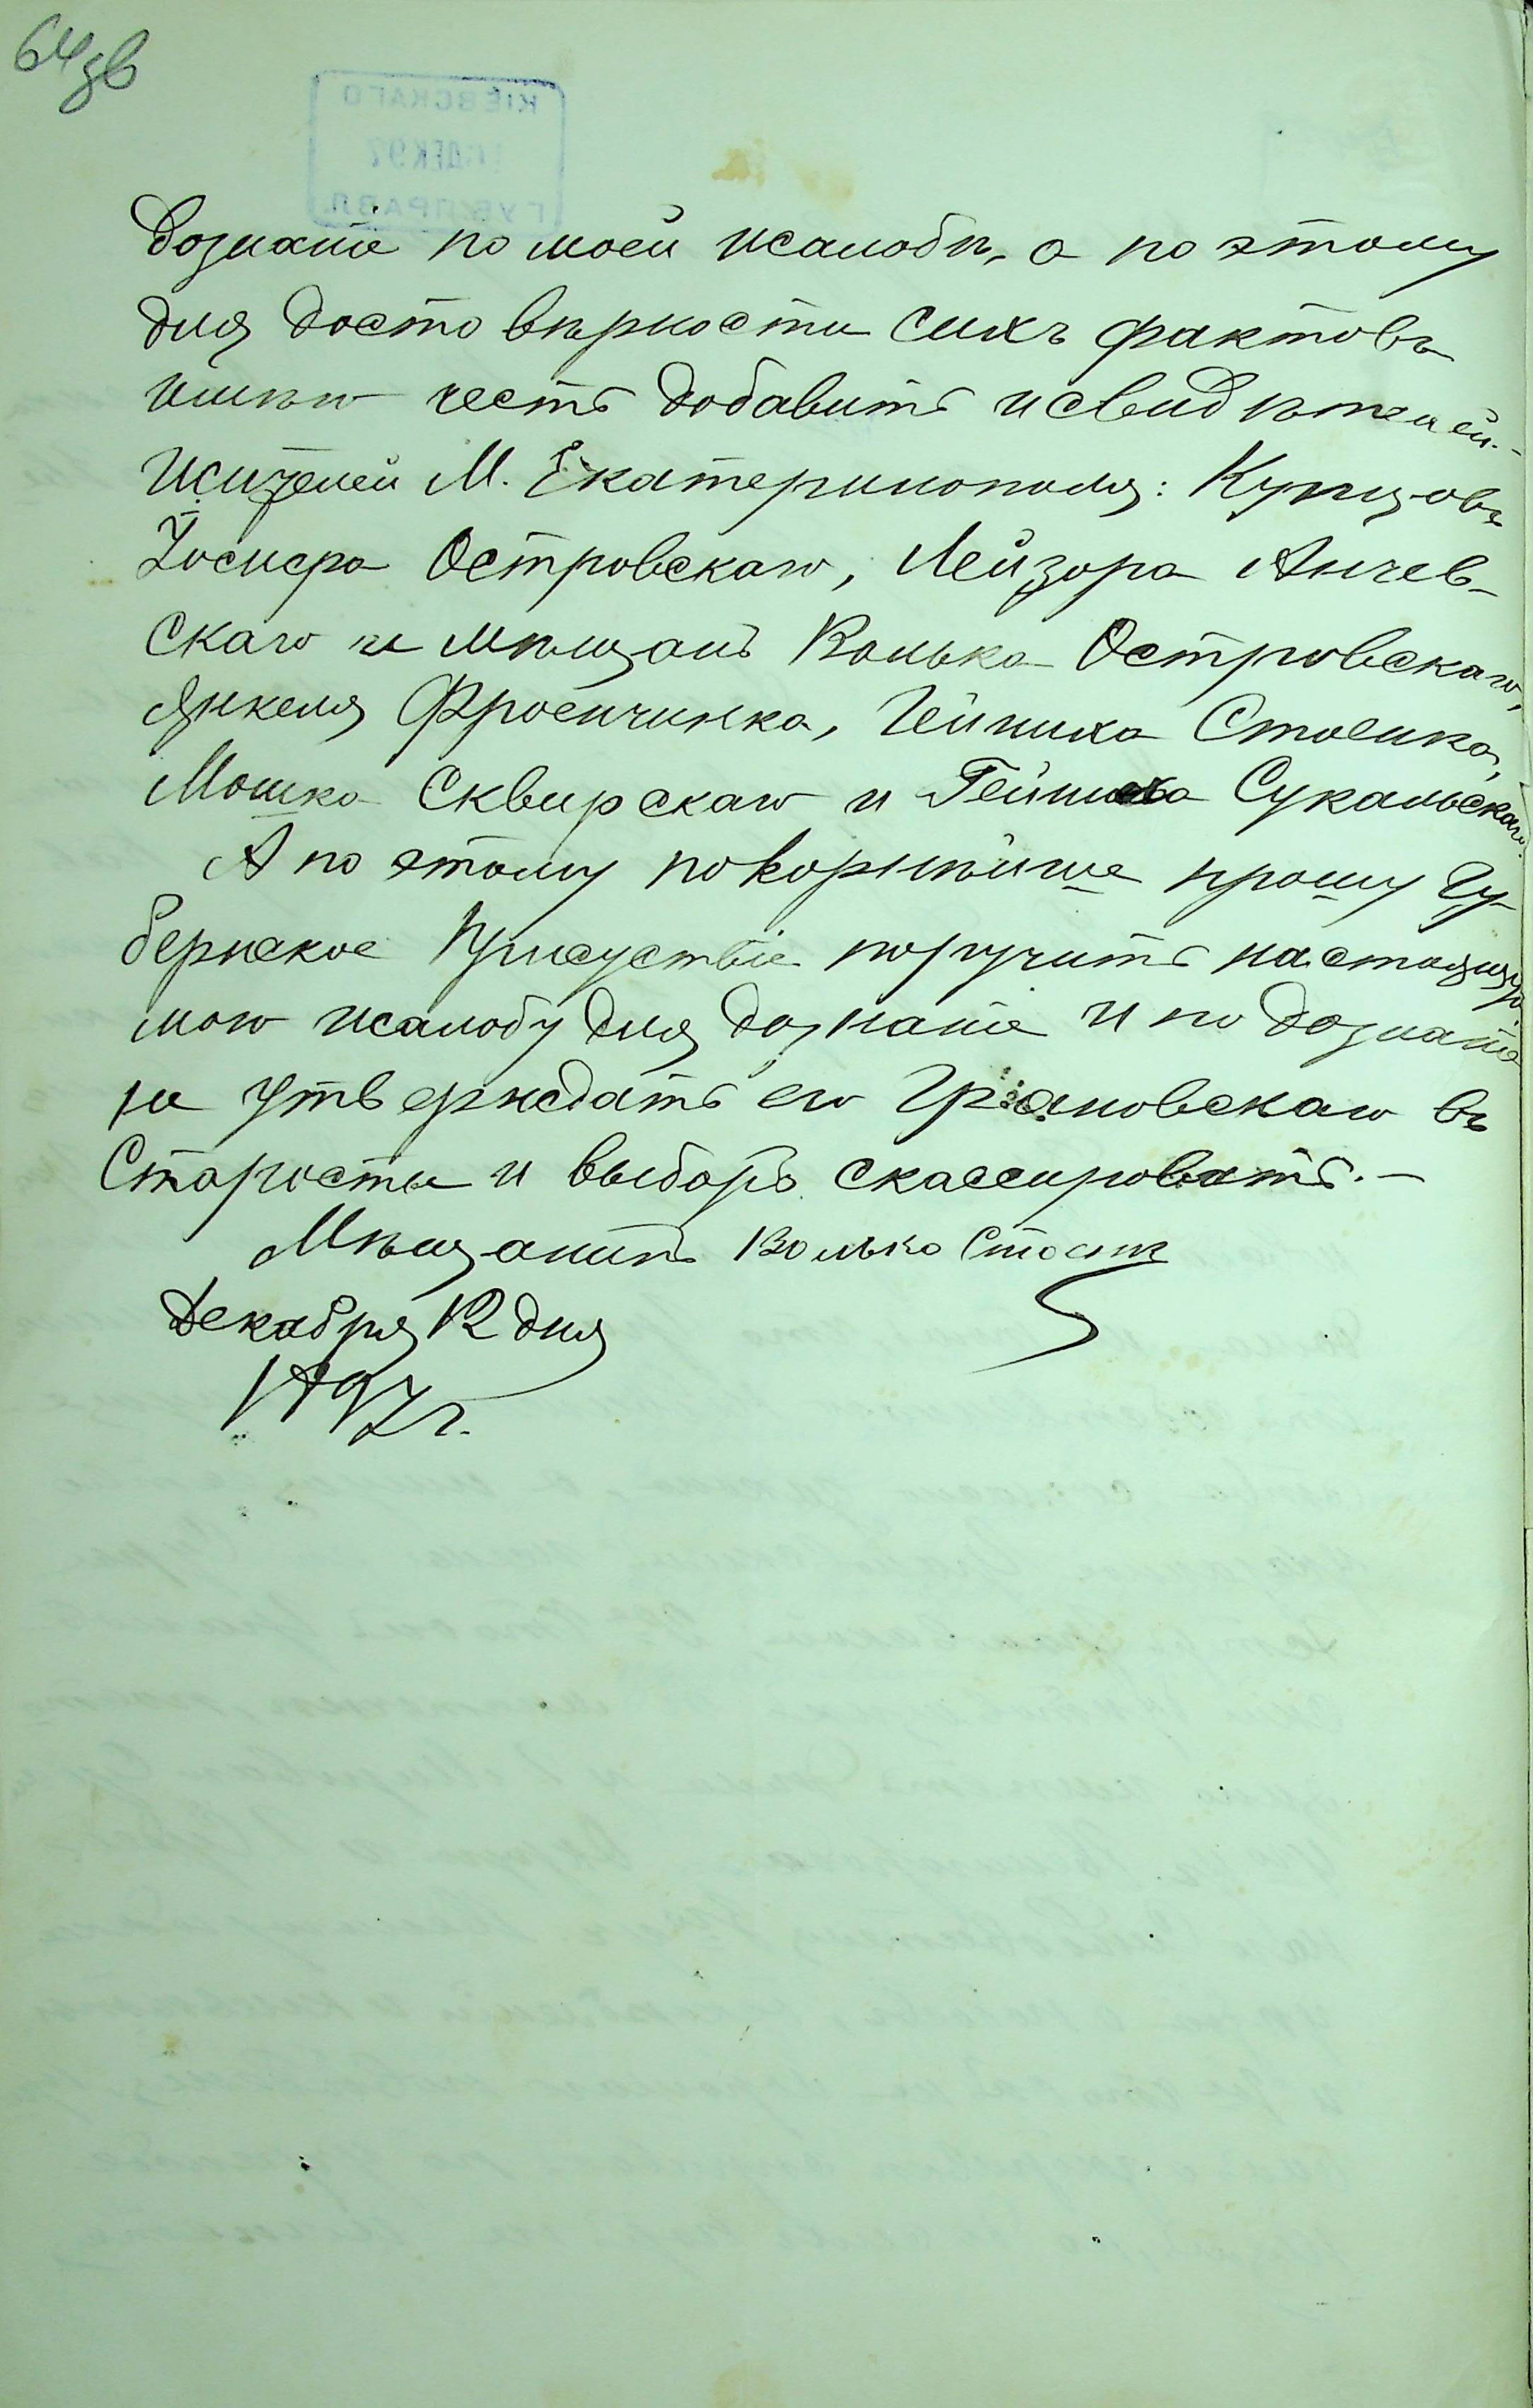 64зв
дознаніе по моей жалобѣ, а по этому
для достовѣрности сихъ фактовъ
имѣю честь добавить и свидѣтелей.-
жителей М. Екатеринополя: Купцовъ
Іосифа Островскаго, Лейзора Анчев-
скаго и мѣщанъ Волька Островскаго,
Янкеля Фроенченка, Гейниха Стоенка,
Мошка Сквирскаго и Гейниха Сукальскаго.
А по этому покорнѣйше прошу Гу-
бернское Присуствіе поручить настоящую
мою жалобу для дознаніе и по дознаніе
не утверждать его Грановскаго въ
Старосты и выборъ скассировать.-
Мѣщанинъ Волько Стоенк
Декабря 12 дня
1897 г.
КІЕВСКАГО
ДЕК 97
ГУБ. ПРАВЛ.